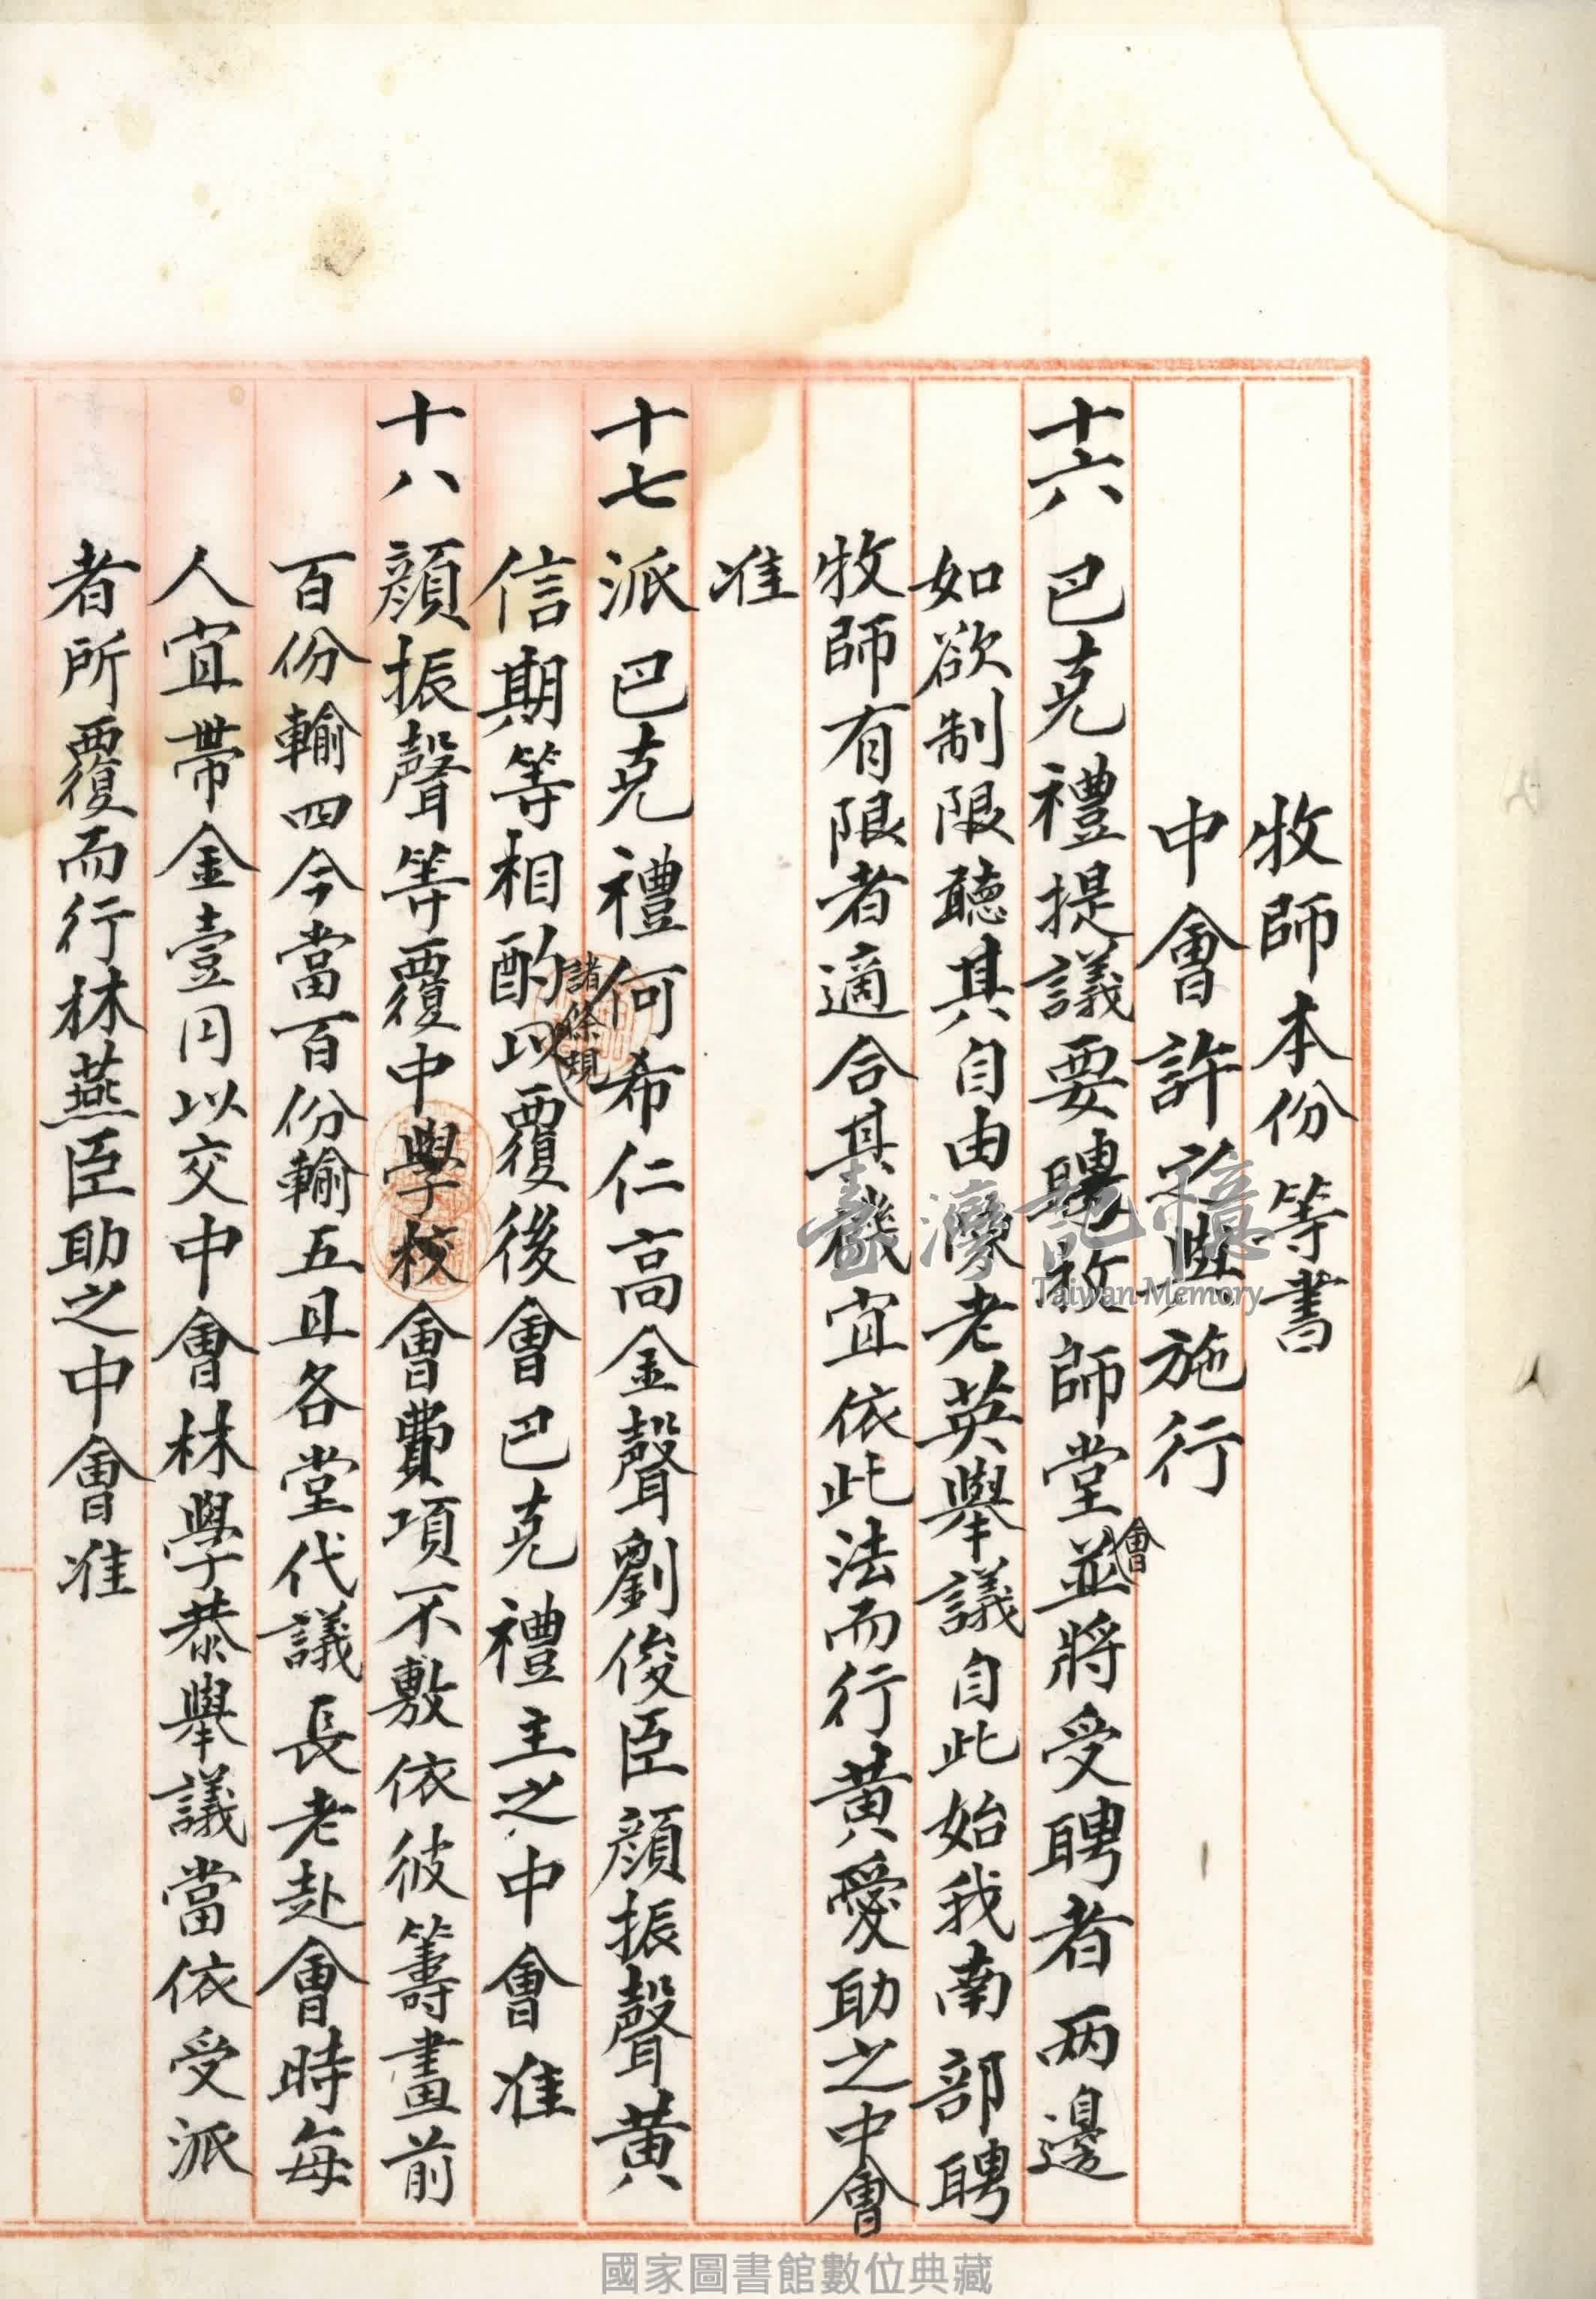 牧師本份等書
中會許之且施行
十六 巴克禮提議要聘牧師堂會並將受聘者两邊
如欲制限聽其自由廖老英舉議自此始我南部聘
牧師有限者適合其機宜依此法而行黃愛助之中會
准
十七 派巴克禮何希仁高金聲劉俊臣顏振聲黃
信期等相酌諸條規以覆後會巴克禮主之中會准
十八 顏振聲等覆中學校會費項不敷依彼籌畫前
百份輸四今當百份輸五且各堂代議長老赴會時每
人宜帶金壹円以交中會林學恭舉議當依受派
者所覆而行林燕臣助之中會准
臺灣記憶
Taiwan Memory
國家圖書館數位典藏